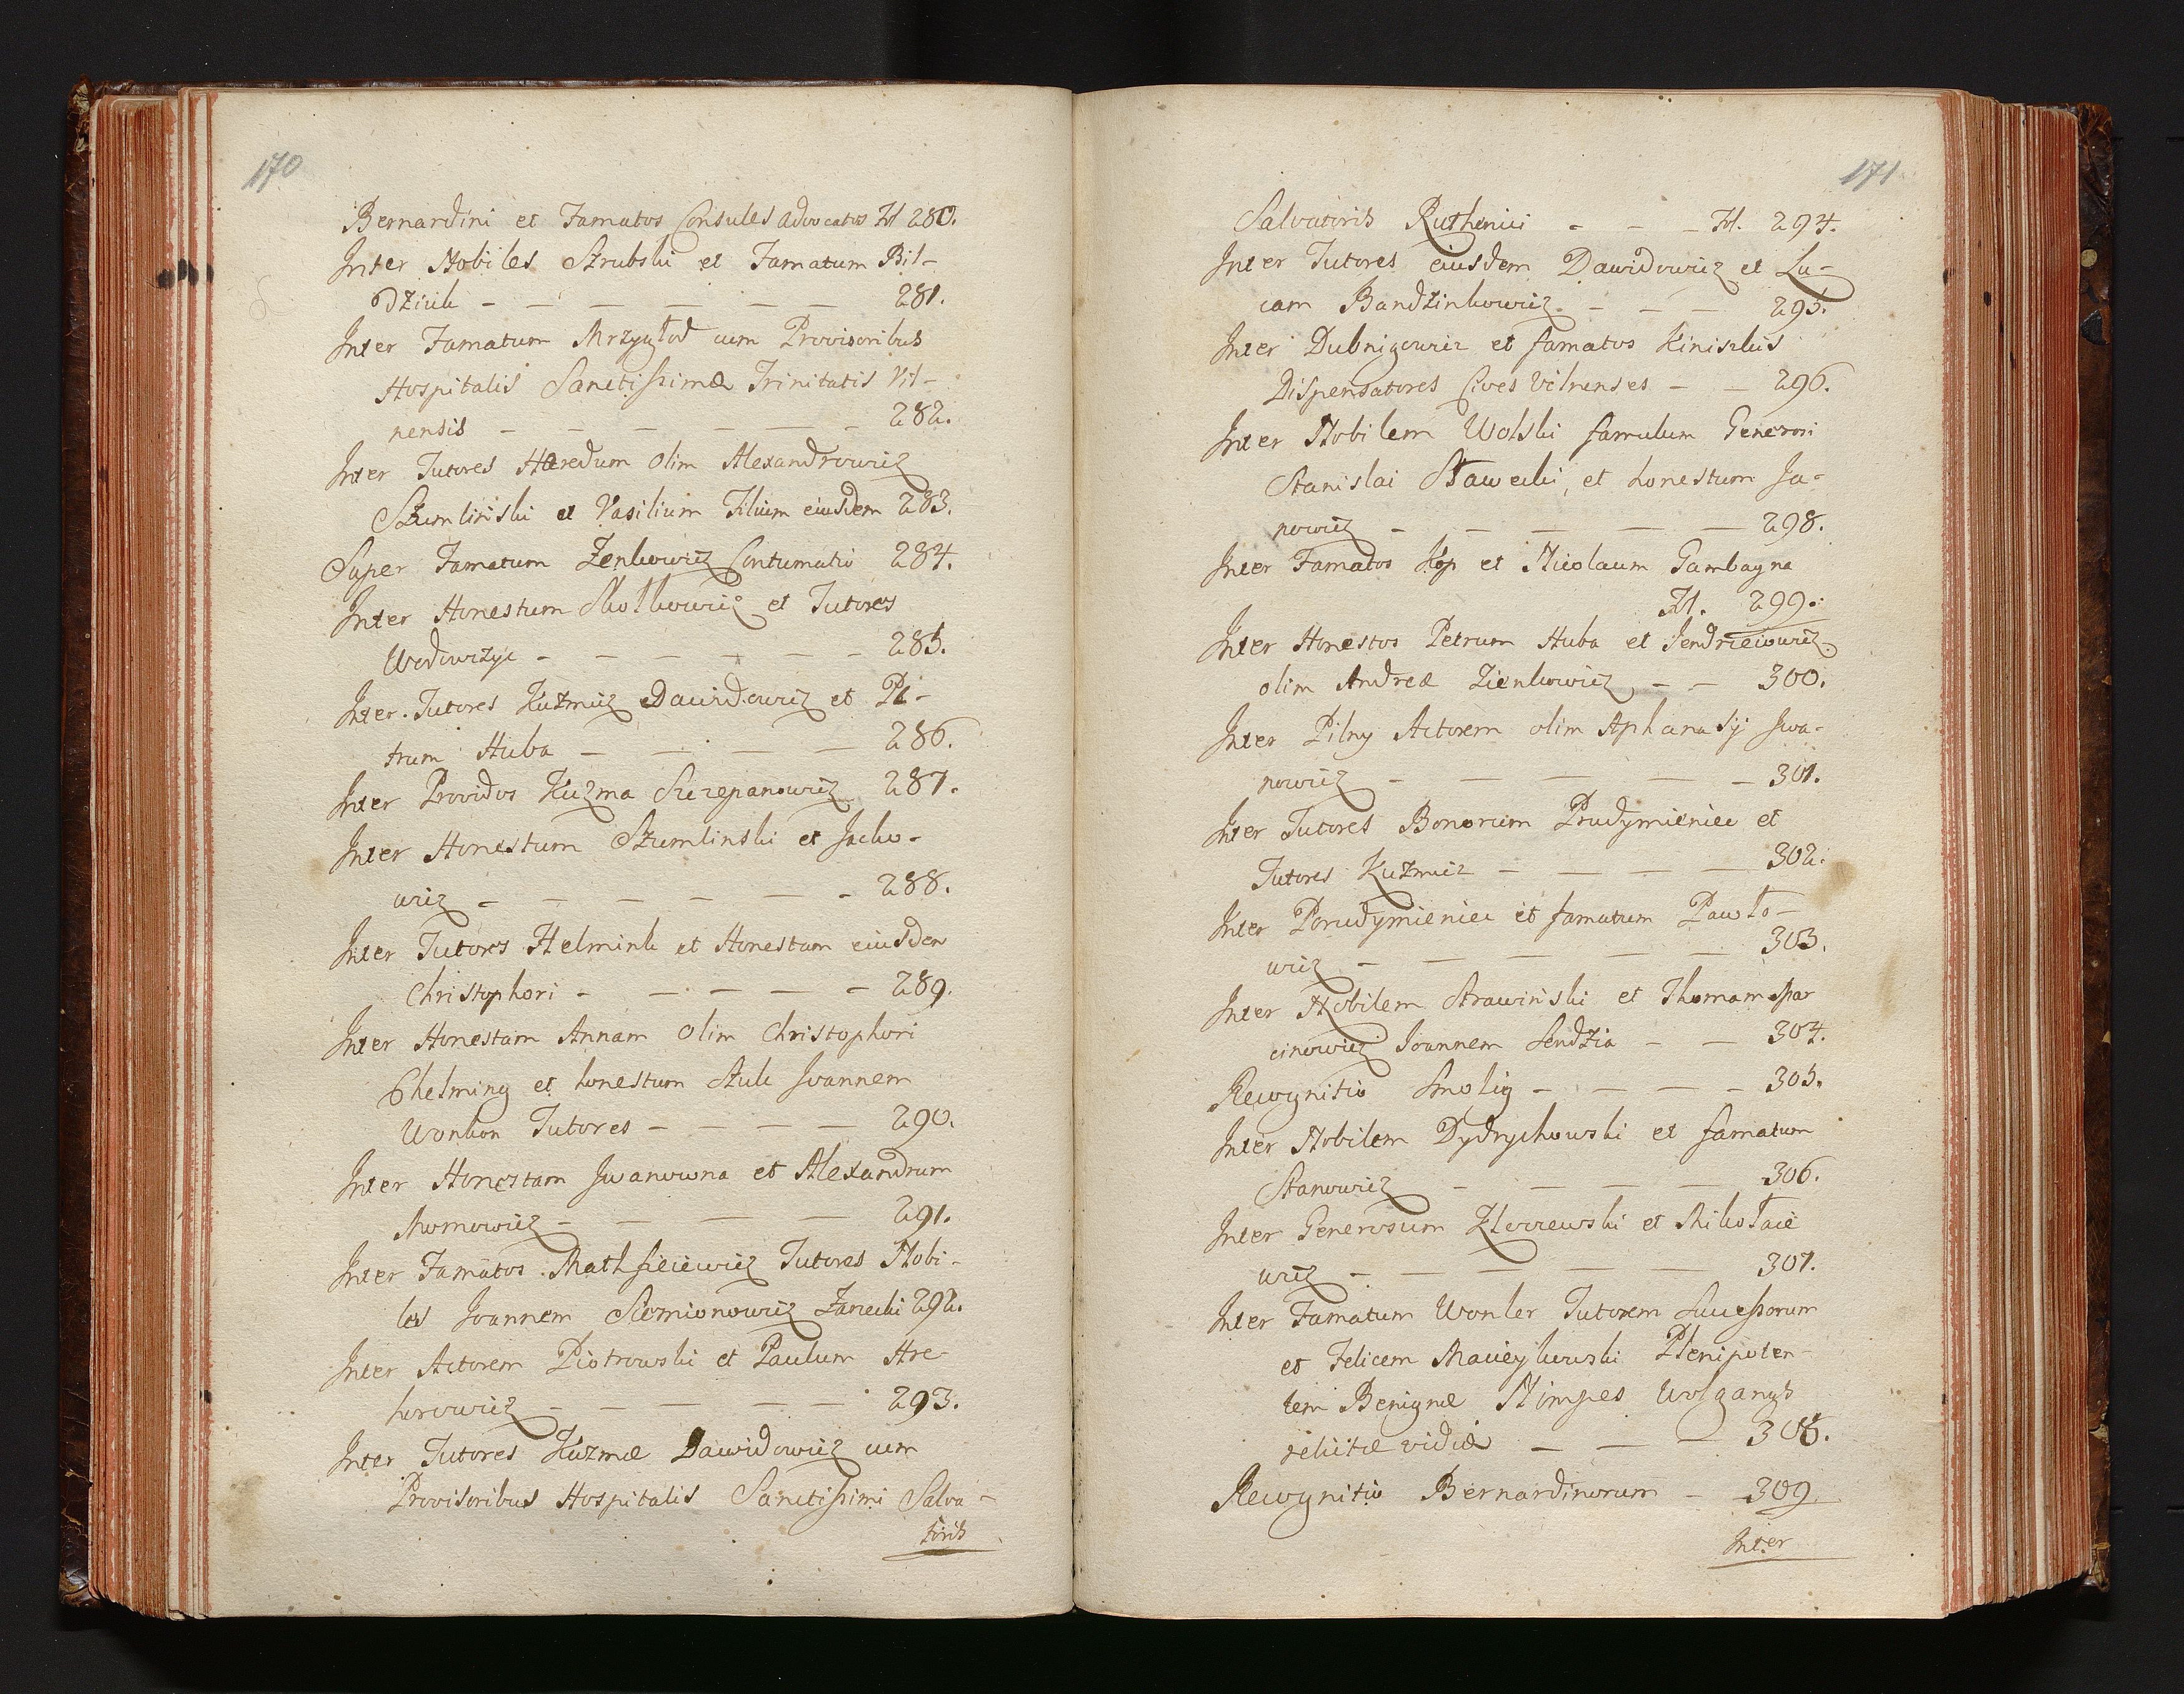 170
Bernardini et Famatos Consules advocatos Fol 280.
Inter Nobiles Strubski et Famatum Bil-
dziuk - - - - - - 281.
Inter Famatum Mrzygłod cum Provisoribus
Hospitalis Sanctissimæ Trinitatis Vil-
nensis - - - - - - 282.
Inter Tutores Hæredum olim Alexandrowicz
Szumlinski et Vasilium Filium eiusdem 283.
Super Famatum Zenkowicz Contumatio 284.
Inter Honestum Skolkowicz et Tutores
Wodowzyc - - - - - - 285.
Inter Tutores Kuzmicz Dawidowicz et Pe-
trum Huba - - - - 286.
Inter Providos Kuzma Szczepanowicz 287.
Inter Honestum Szumlinski et Jacko-
wicz - - - - - - 288.
Inter Tutores Helmink et Honestam eiusdem
Christophori - - - - - 289.
Inter Honestam Annam olim Christophori
Chelming et honestum Stuk Joannem
Wonkon Tutores - - - - 290.
Inter Honestam Jwanowna et Alexandrum
Momowicz - - - - 291.
Inter Famatos Mathfieiewicz Tutores Nobi-
les Joannem Siemionowicz Zanecki 292.
Inter Actorem Piotrowski et Paulum Hre-
horowicz - - - - - 293.
Inter Tutores Kuzmæ Dawidowicz cum
Provisoribus Hospitalis Sanctissimi Salva-
toris
171
Salvatoris Ruthenici - - - Fol. 294.
Inter Tutores eiusdem Dawidowicz et Lu-
cam Bandzinkowicz - - - 295.
Inter Dubnigowicz et famatos Kiniskis
Dispensatores Cives Vilnenses - - 296.
Inter Nobilem Wolski famulum Generosi
Stanislai Stawecki, et honestum Ja-
nowicz - - - - - 298.
Inter Famatos Kop et Nicolaum Gambagna
Fol. 299.
Inter Honestos Petrum Huba et Jendrzeiowicz
olim Andreæ Zienkowicz - - 300.
Inter Pilny Actorem olim Aphanasij Jwa-
nowicz - - - - - 301.
Inter Tutores Bonorum Prudymieniec et
Tutores Kuzmicz - - - - 302.
Inter Porudymieniec et famatum Pawło-
wicz - - - - - 303.
Inter Nobilem Strawiński et Thomam Spar
cinowicz Joannem Sendzia - - 304.
Recognitio Smolig - - - - 305.
Inter Nobilem Dydrychowski et famatum
Stanowicz - - - - 306.
Inter Generosum Zlorzewski et Mikołaie
wicz - - - - - 307.
Inter Famatum Wonler Tutorem Successorum
et Felicem Macieykowski Plenipoten-
tem Benignæ Nimpes Wolgangs
relictæ viduæ - - - 308.
Recognitio Bernardinorum - 309.
Inter